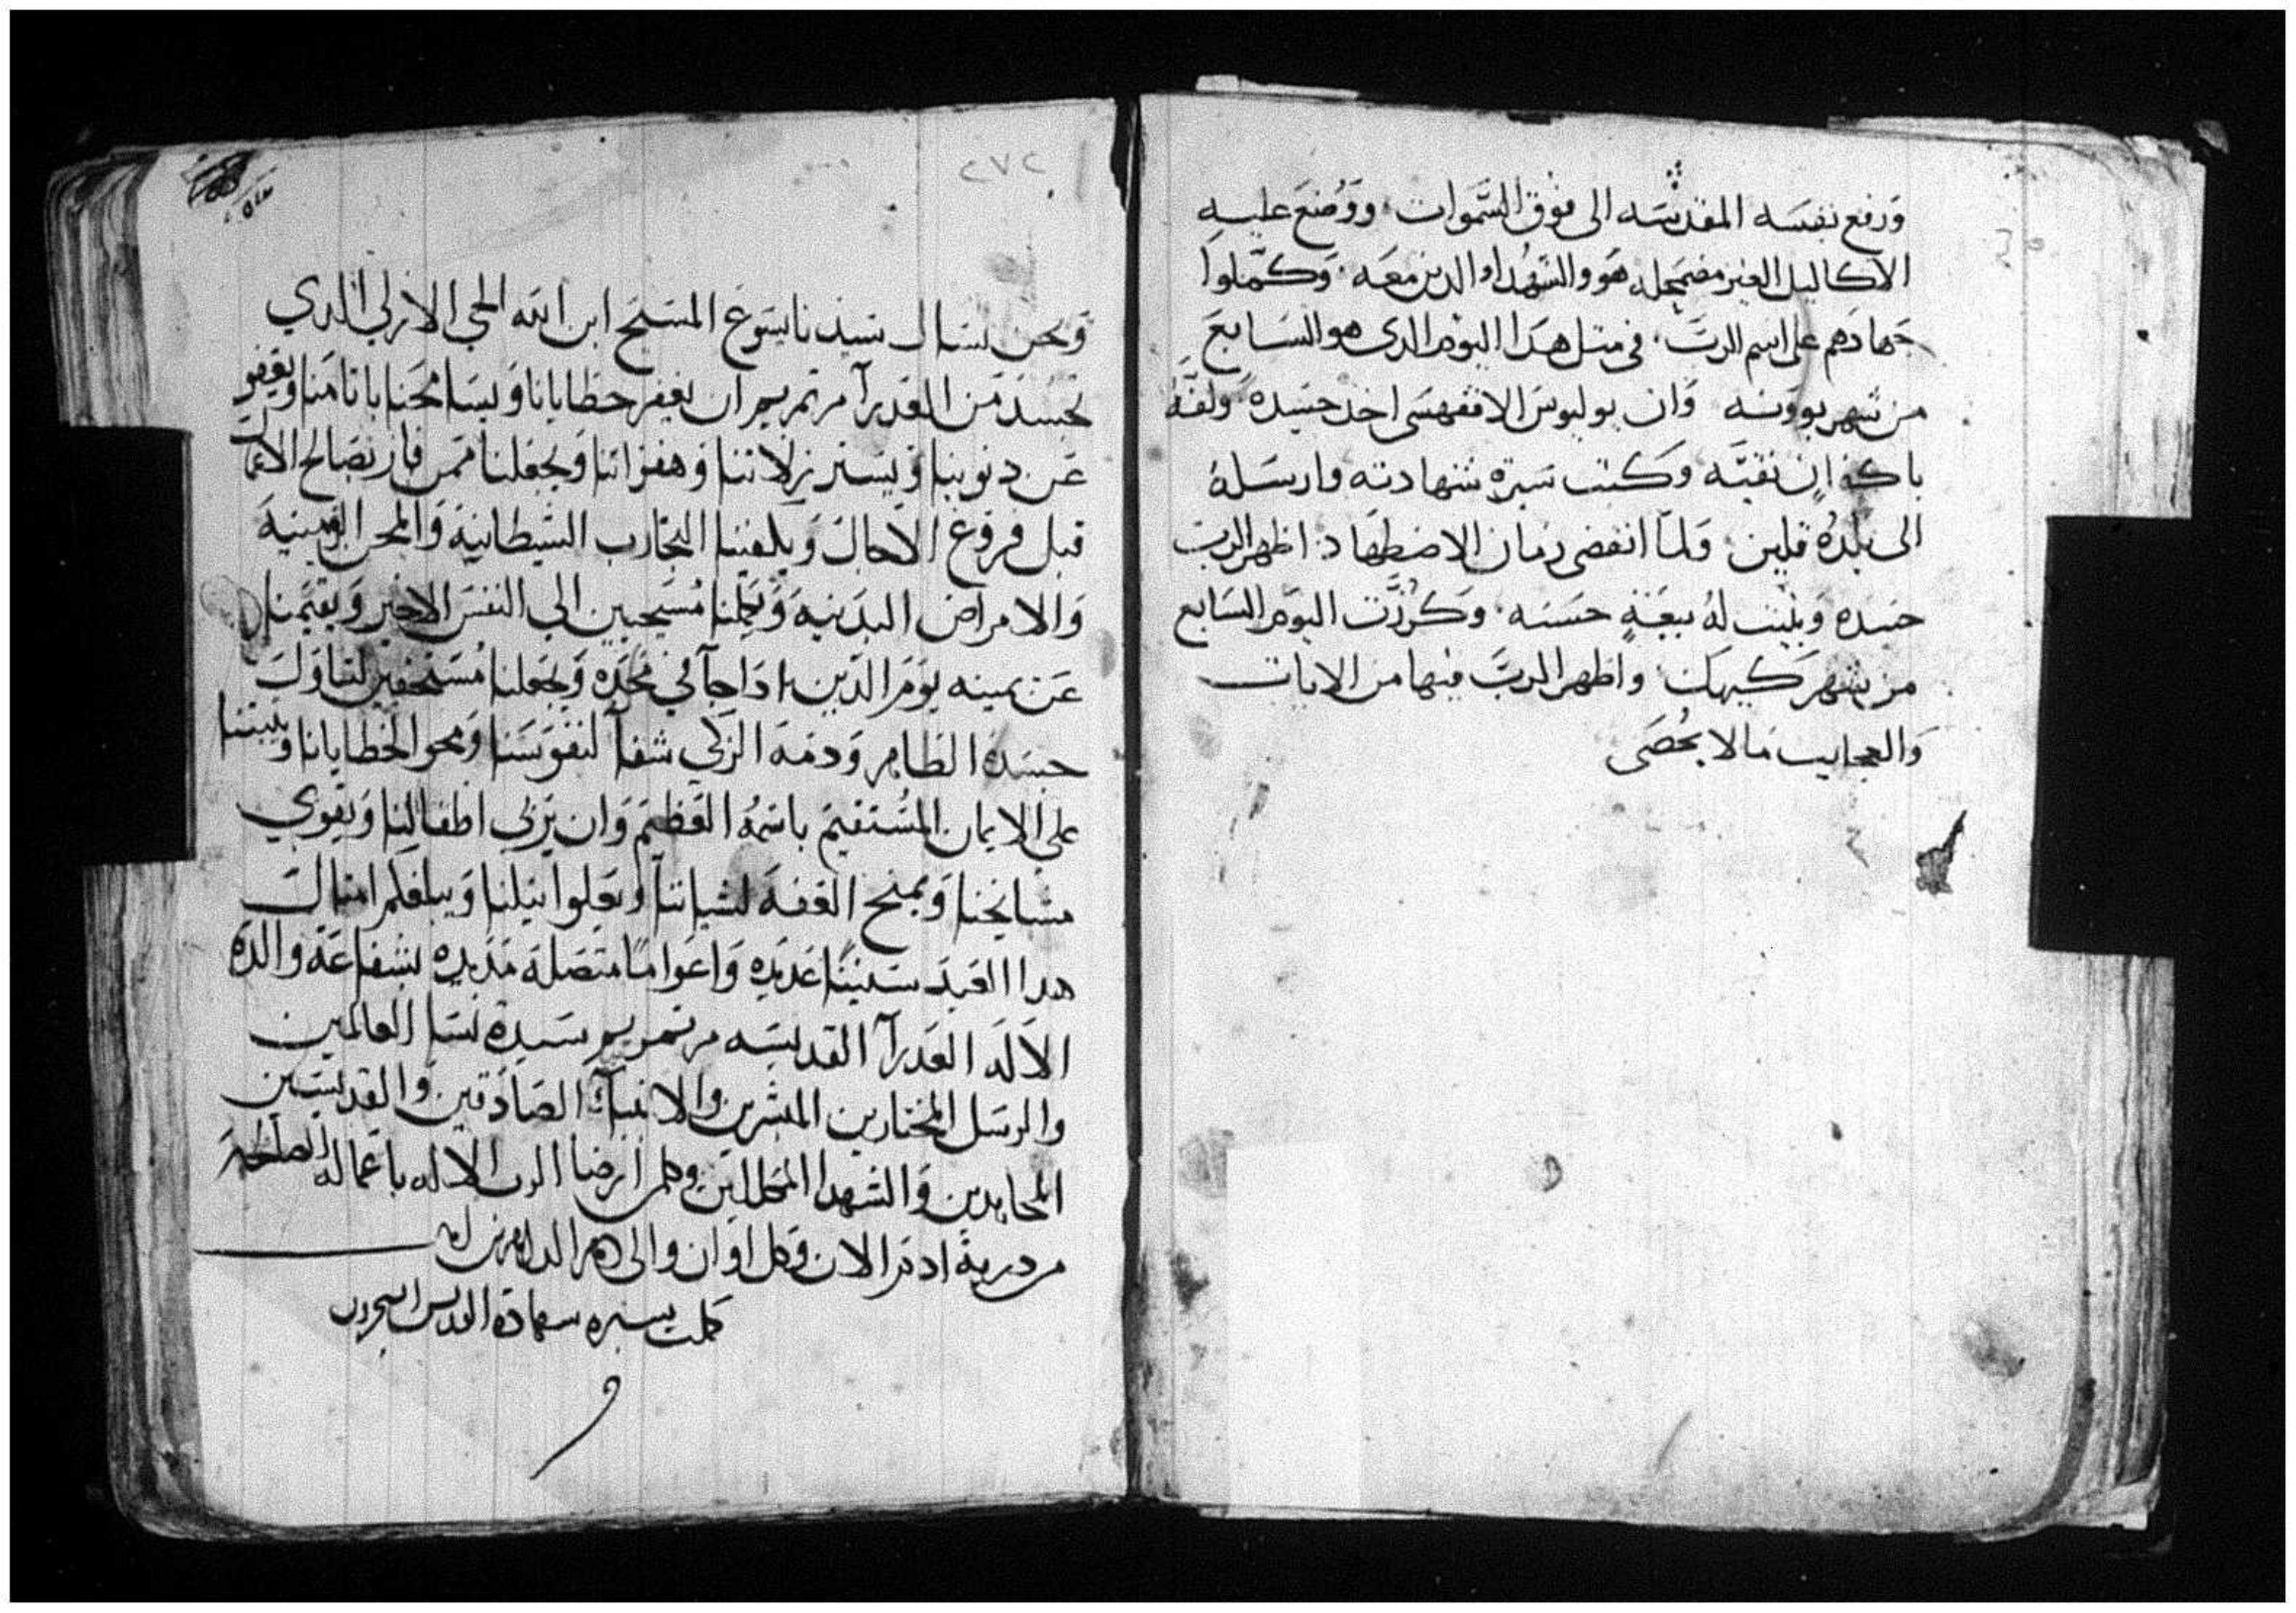 ورفع نفسه المقدسه الى فوق السموات ووضع عليه
الاكاليل الغير مضمحله هو والشهدا والدين معه وكملوا
جهادهم على اسم الرب في متل هدا اليوم الدى هو السابع
من شهر بوونه وان يوليوس الاقفهسى اخد جسده ولفه
باكفان نقيه وكتب سيرة شهادته وارسله
الى بلده قلين ولما انقضى زمان الاضطهاد اظهر الرب
جسده وبنيت له بيعة حسنه وكرزت اليوم السابع
من شهر كيهك واظهر الرب فيها من الايات
والعجايب مالا يحصى
٢٧٢
ونحن نسال سيدنا يسوع المسيح ابن الله الحي الازلي الدي
تجسد من العدرآ مرتمريم ان يغفر خطايانا ويسامحنا باتامنا ويعفو
عن دنوبنا ويستر زلاتنا وهفواتنا ويجعلنا ممن فاز بصالح الاعمال
قبل فروغ الاجال ويكفينا التجارب الشيطانية والمحن الزمنية
والامراض البدنيه ويجعلنا مسيحيين الي النفس الاخير ويقيمنا
عن يمينه يوم الدين ادا جآ في مجده ويجعلنا مستحقين لتناول
جسده الطاهر ودمه الزكي شفآ لنفوسنا ومحوا لخطايانا ويتبتنا
علي الايمان المستقيم باسمه العظيم وان يربي اطفالنا ويقوي
مشايخنا ويمنح العفه لشباننا ويعلوا نيلنا ويبلغكم امتال
هدا العيد سنينا عديده واعواما متصلة مديده بشفاعة والدة
الاله العدرآ القديسه مرتمريم سيدة نسا العالمين
والرسل المختارين المبشرين والانبيآ الصادقين والقديسين
المجاهدين والشهدا المكللين وكلمن ارضا الرب الاله باعماله الصالحه
من درية ادم الان وكل اوان والى دهر الداهرين امين
كملت سيره شهادة القديس